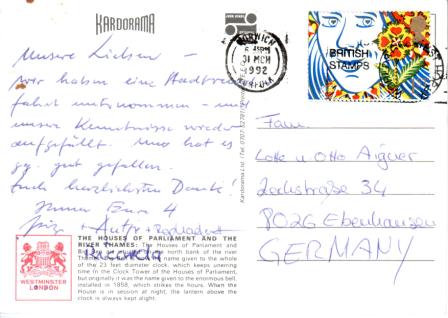 KARDORAMA
Unsere Lieben –
wir haben eine Stadtrund-
fahrt unternommen – und
unser Kenntnisse wieder
aufgefüllt. Uns hat es
gut gefallen.
Euch herzlichsten Dank!
Immer Eure 4
+ Antje +
Ricarda
THE HOUSES OF PARLIAMENT AND THE
RIVER THAMES: The Houses of Parliament and
north bank of the river
name given to the whole
of the 23 feet diameter clock, which keeps unerring
time in the Clock Tower of the Houses of Parliament,
but originally it was the name given to the enormous bell,
installed in 1858, which strikes the hours. When the
House is in session at night, the lantern above the
clock is always kept alight.
WESTMINSTER
LONDON
Kardorama Ltd.
NORWICH
31 MCH
1992
NORFOLK
BRITISH
STAMPS
Fam.
Lotte u Otto Aigner
Zechstraße 34
8026 Ebenhausen
GERMANY